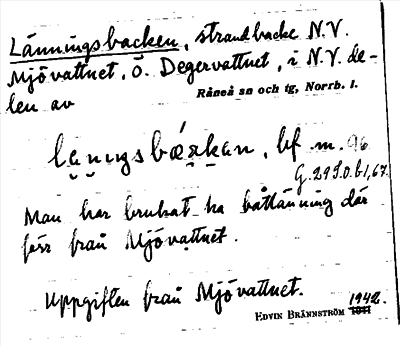 Länningsbacken, strandbacke N.V.
Mjövattnet, Ö. Degervattnet, i N.V. de-
len av
Råneå sn och tg, Norrb. l.
bf m. 96
G. 2950.b1,67.
Man har brukat ha båtlänning där
förr från Mjövattnet.
Uppgiften från Mjövattnet.
EDVIN BRÄNNSTRÖM 1942.